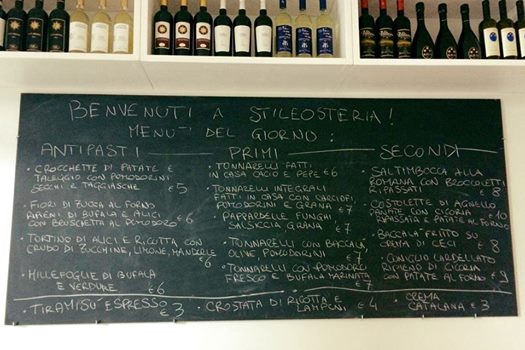 BENVENUTI A STILEOSTERIA!
MENU' DEL GIORNO:
ANTIPASTI
· CROCCHETTE DI PATATE E
TALEGGIO CON POMODORINI
SECCHI E TAGGIASCHE €5
· FIORI DI ZUCCA AL FORNO
RIPIENI DI BUFALA E ALICI
CON BRUSCHETTA AL POMODORO €6
· TORTINO DI ALICI E RICOTTA CON
CRUDO DI ZUCCHINE, LIMONE, MANDORLE
€6
· MILLEFOGLIE DI BUFALA
E VERDURE €6
PRIMI
· TONNARELLI FATTI
IN CASA CACIO E PEPE €6
· TONNARELLI INTEGRALI
FATTI IN CASA CON CARCIOFI,
POMODORINI E GRANA €7
· PAPPARDELLE FUNGHI
SALSICCIA GRANA €7
· TONNARELLI CON BACCALÀ,
OLIVE POMODORINI €7
· TONNARELLI CON POMODORO
FRESCO E BUFALA MARINATA €7
SECONDI
· SALTIMBOCCA ALLA
ROMANA CON BROCCOLETTI
RIPASSATI € 8
· COSTOLETTE DI AGNELLO
PANATE CON CICORIA
RIPASSATA E PATATE AL FORNO €10
· BACCALA' FRITTO SU
CREMA DI CECI € 8
· CONIGLIO LARDELLATO
RIPIENO DI CICORIA
CON PATATE AL FORNO €9
· TIRAMISU' ESPRESSO €3
· CROSTATA DI RICOTTA E
LAMPONI € 4
· CREMA
CATALANA € 3